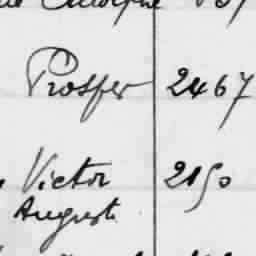 Prosper 2467
Victor 2150
August